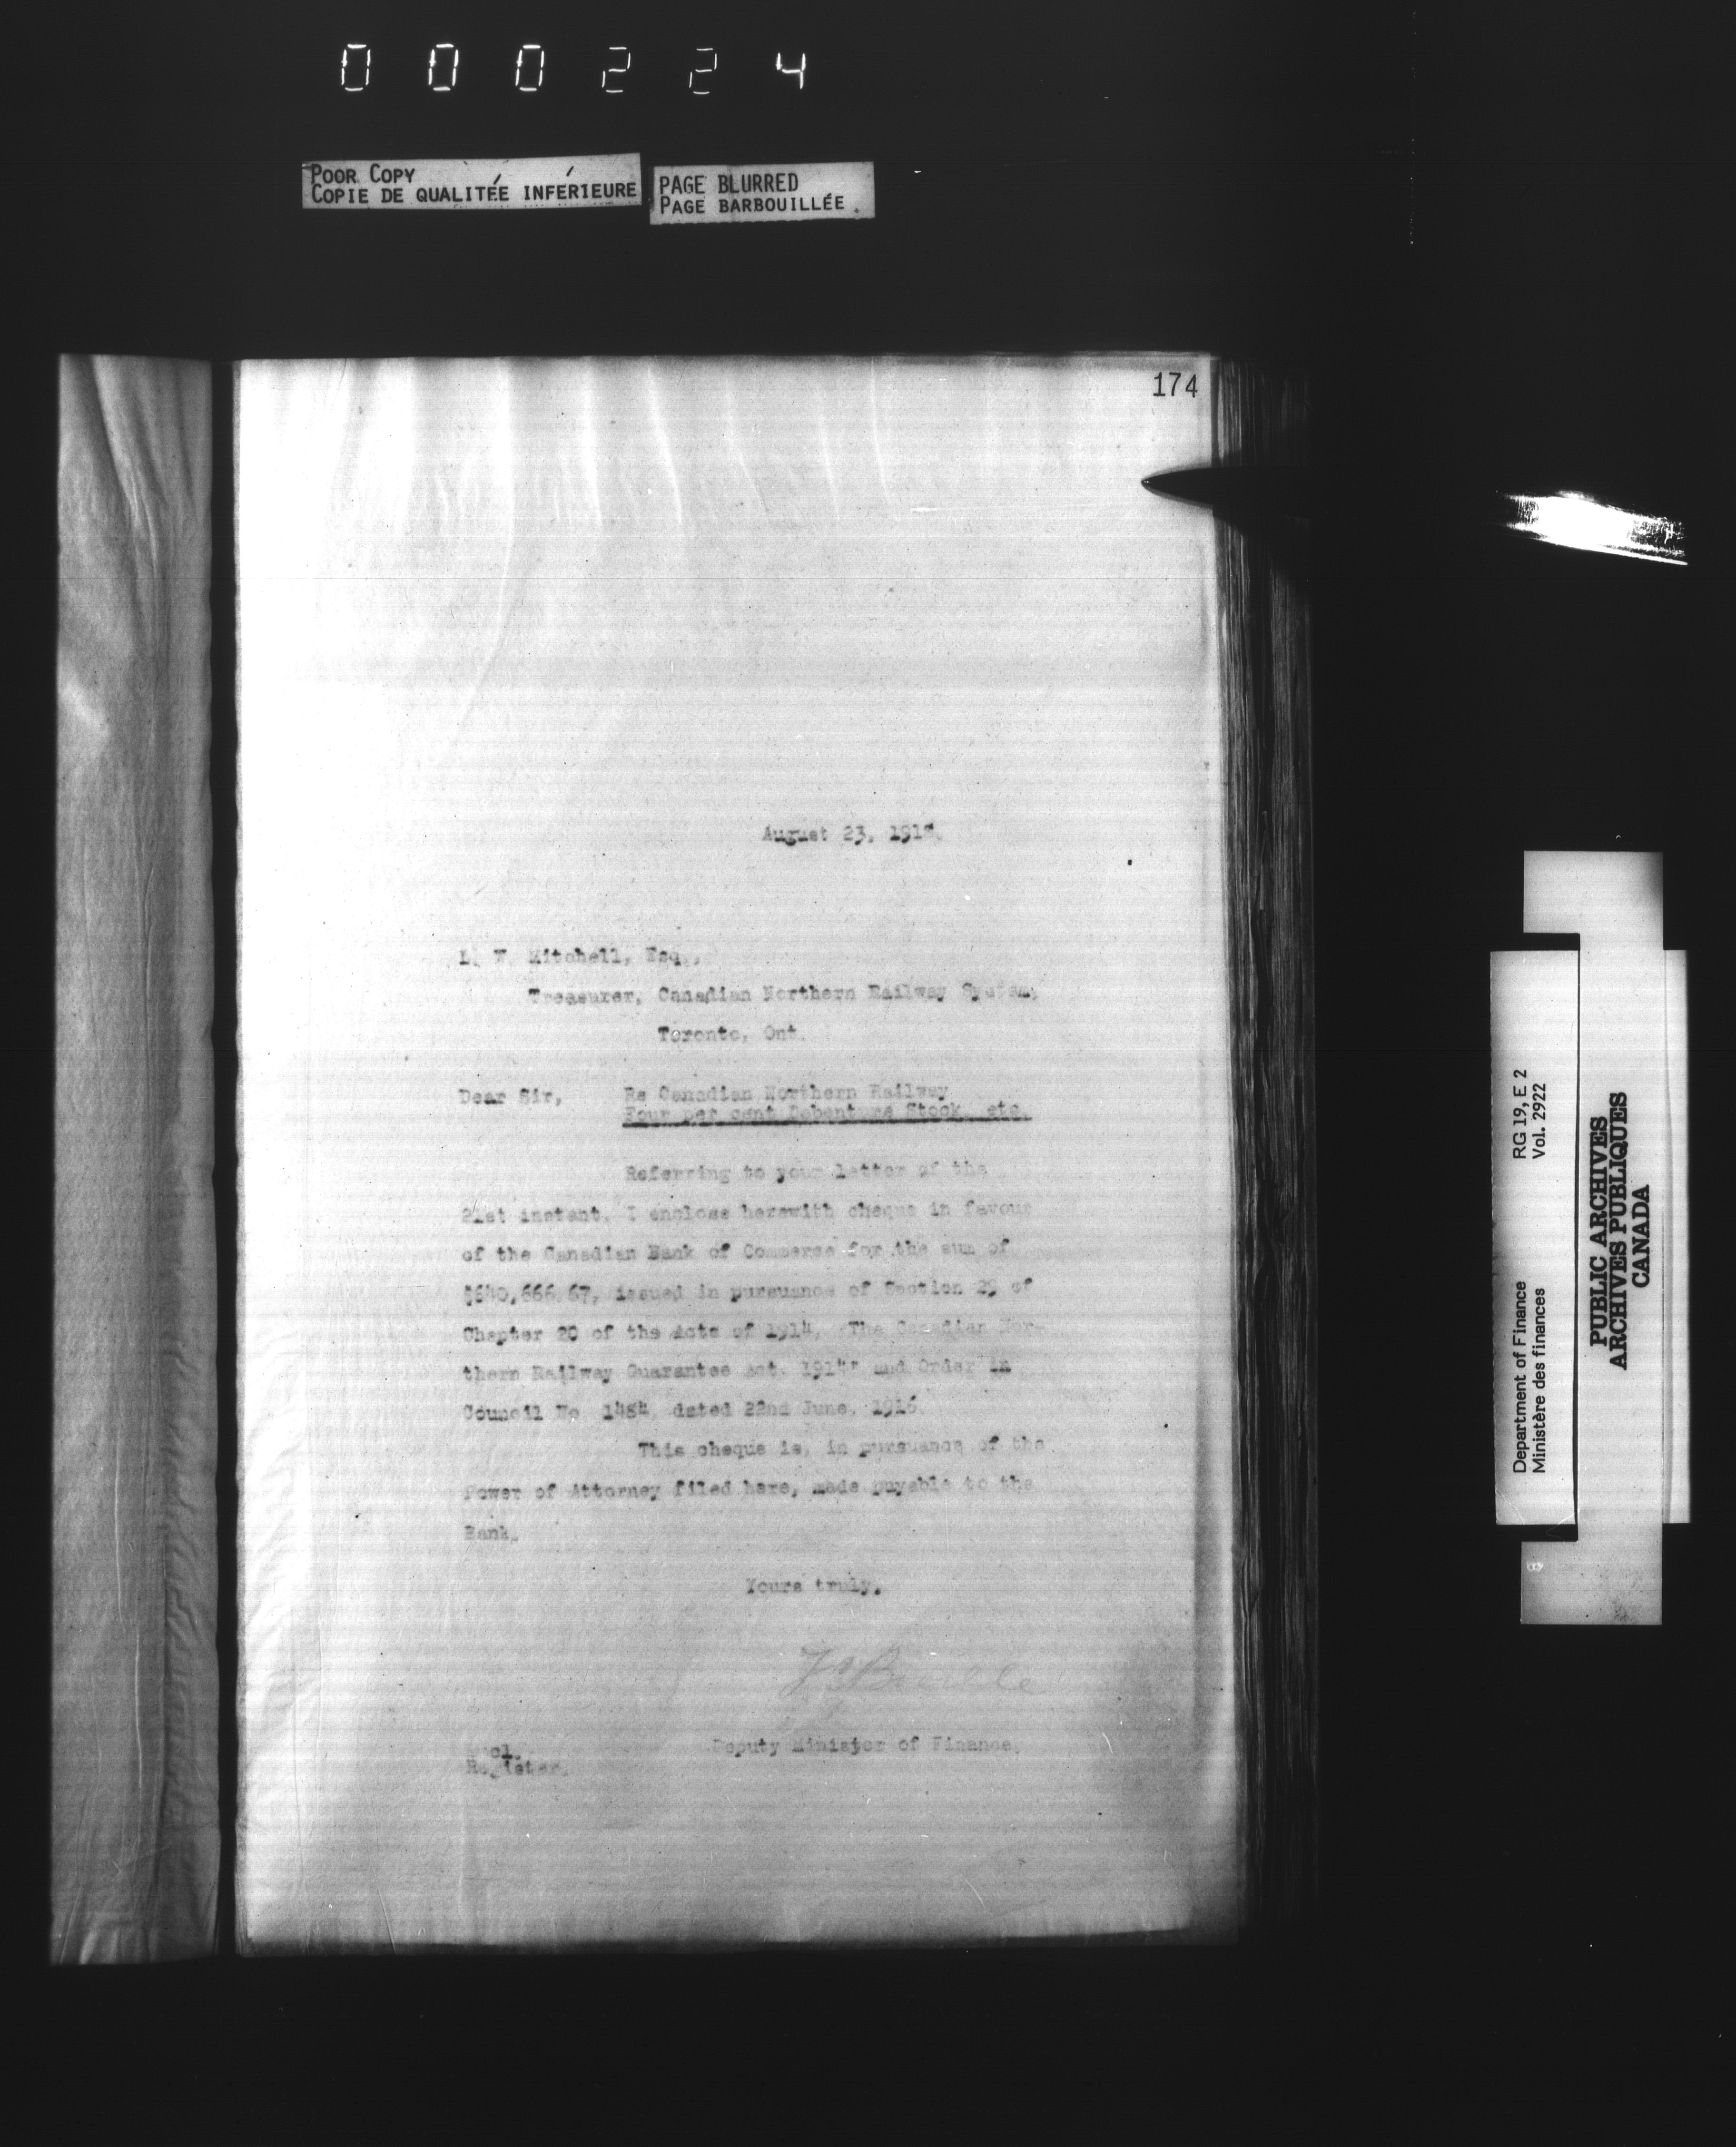 000224
POOR COPY
COPIE DE QUALITÉE INFÉRIEURE
PAGE BLURRED
PAGE BARBOUILLÉE
174
August 23, 191
L. W. Mitchell, Esq.,
Treasurer, Canadian Northern Railway System,
Toronto, Ont.
Dear Sir,
Re Canadian Northern Railway
Four per cent Debenture Stock, etc.
Referring to your letter of the
21st instant, I enclose herewith cheque in favour
of the Canadian Bank of Commerce for the sum of
$640,666.67, issued in pursuance of Section 29 of
Chapter 20 of the Acts of 1914, "The Canadian Nor-
thern Railway Guarantee Act, 1914" and Order in
Council No. 1484, dated 22nd June, 1916.
This cheque is, in pursuance of the
Power of Attorney filed here, made payable to the
Bank.
Yours truly,
Deputy Minister of Finance.
Encl.
Register.
Department of Finance RG 19, E 2
Ministère des finances Vol. 2922
PUBLIC ARCHIVES
ARCHIVES PUBLIQUES
CANADA